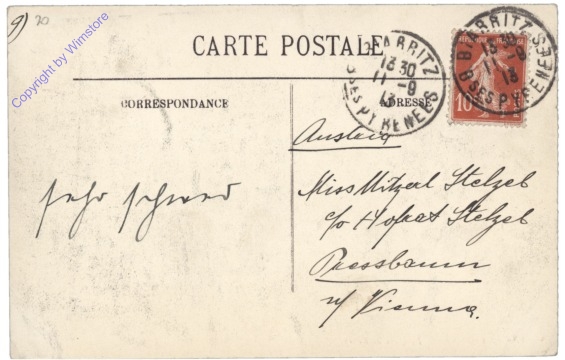 9) 20
CARTE POSTALE
CORRESPONDANCE
ADRESSE
BIARRITZ
13 30
11 -9
13
BSES PYRENEES
BIARRITZ
13 30
-9
13
BSES PYRENEES
10
Austria
Miss Mitzerl Stelzel
c/o Hofrat Stelzel
Pressbaum
n/ Vienna.
sehr schwer
Copyright by Wimstore